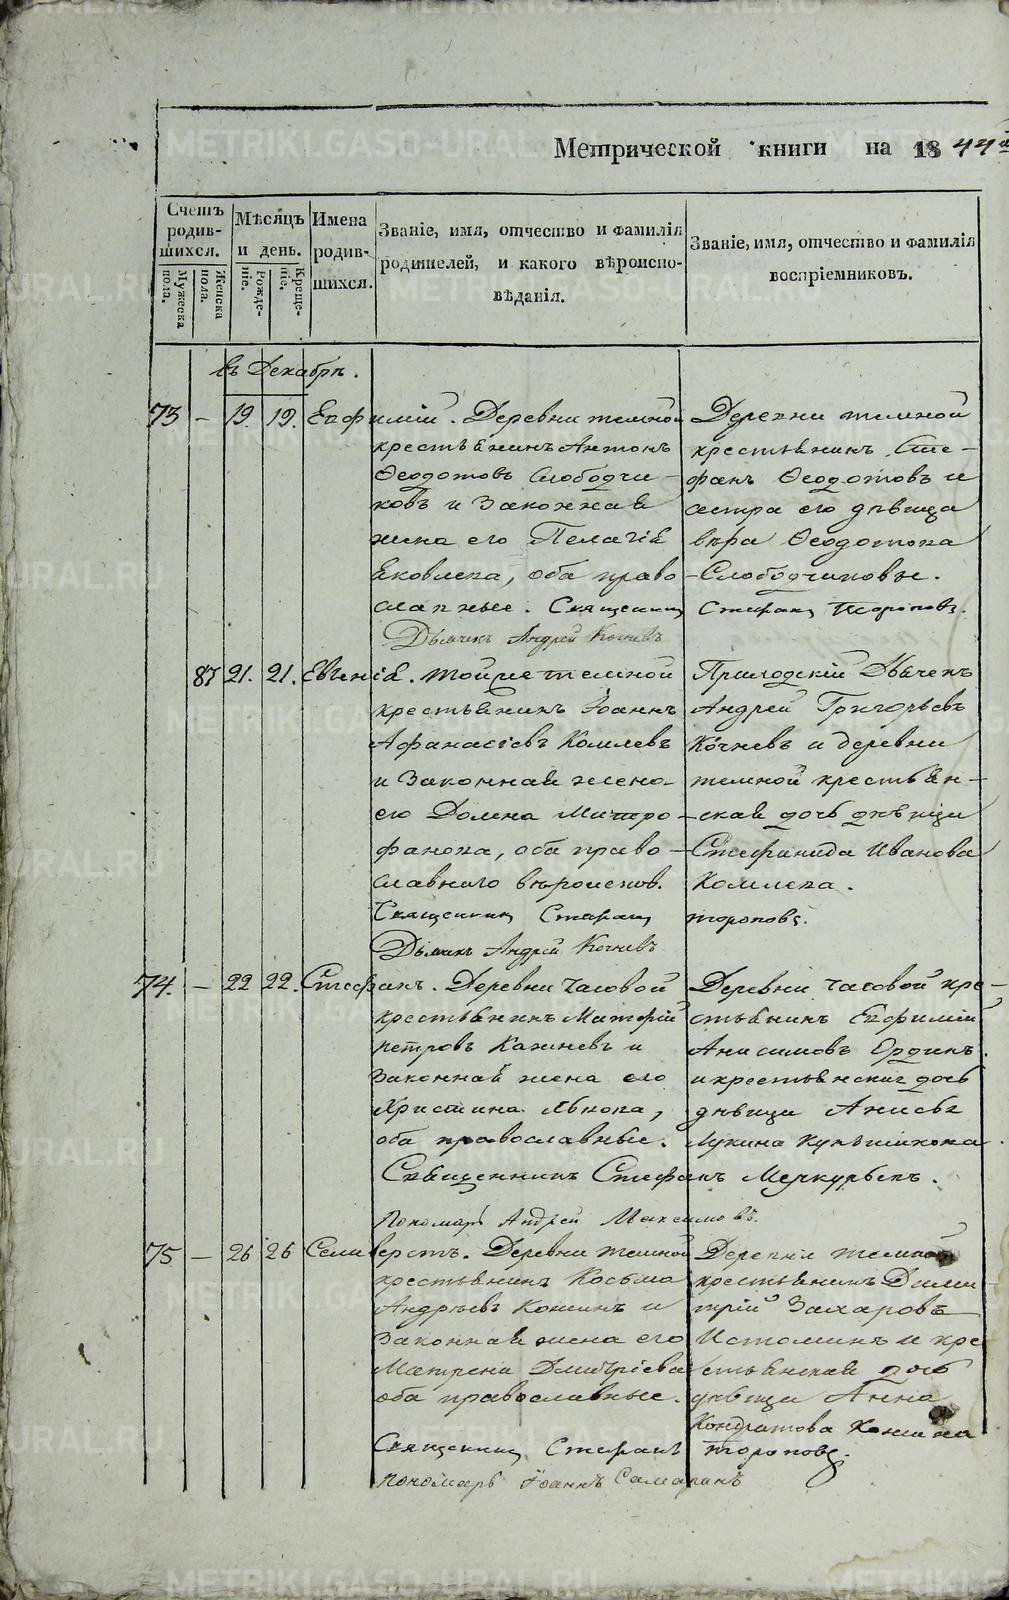 Метрической книги на 1844й
Счетъ родив-шихся.
Мужеска пола.
Женска пола.
Мѣсяцъ и день.
Рожде-ніе.
Креще-ніе.
Имена родив-шихся.
Званіе, имя, отчество и фамилія
родишелей, и какого вѣроиспо-
вѣданія.
Званіе, имя, отчество и фамилія
воспріемниковъ.
въ Декабрѣ.
73 – 19. 19. Евфимій. Деревни темной
крестьянинъ Антонъ
Ѳеодотовъ Слободчи-
ковъ и законная
жена его Пелагія
Яковлева, оба право
славные. Священник Стефан Тороповъ.
Дьячекъ Андрей Кочневъ
Деревни темной
крестьянинъ Сте-
фанъ Ѳеодотовъ и
сестра его дѣвица
вѣра Ѳеодотова
Слободчиковы.
87 21. 21. Евгенія. Тойже темной
крестьянинъ Іоаннъ
Афанасіевъ Комлевъ
и законная жена
его Домна Митро-
фанова, оба право-
славнаго вѣроисповѣд.
Священник Стефан Тороповъ.
Дьячекъ Андрей Кочневъ
Приходскій Дьячекъ
Андрей Григорьевъ
Кочневъ и деревни
темной крестьян-
ская дочь дѣвица
Стефанида Иванова
Комлева.
74. – 22 22. Стефанъ. Деревни часовой
крестьянинъ
петровъ и
законная жена его
Христина
оба православные.
Священникъ Стефанъ Меркурьевъ.
Пономарь Андрей Максимовъ.
Деревни часовой кре-
стьянинъ Евфимій
Анисимовъ
и крестьянская дочь
дѣвица Анисья
Лукина
75 – 26 26 Селиверстъ. Деревни темной
крестьянинъ Косьма
Андреевъ Кошинъ и
законная жена его
Матрена Дмитріева
оба православные.
Священник Стефанъ Тороповъ.
Пономарь Іоаннъ Самаринъ
Деревни темной
крестьянинъ Дими-
трій Захаровъ
Истоминъ и кре
стьянская дочь
дѣвица Анна
Кондратова Кошина
METRIKI.GASO-URAL.RU